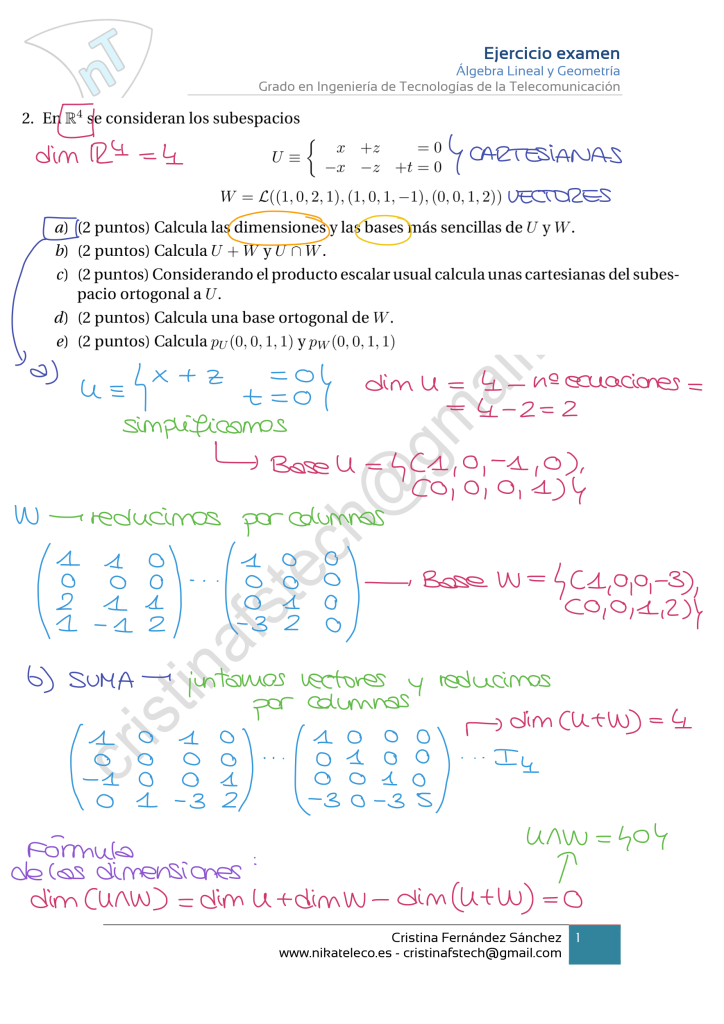 nT
Ejercicio examen
Álgebra Lineal y Geometría
Grado en Ingeniería de Tecnologías de la Telecomunicación
2. En ℝ⁴ se consideran los subespacios
dim ℝ⁴ = 4
U ≡ { x +z = 0
−x −z +t = 0 } CARTESIANAS
W = ℒ((1, 0, 2, 1), (1, 0, 1, −1), (0, 0, 1, 2)) VECTORES
a) (2 puntos) Calcula las dimensiones y las bases más sencillas de U y W.
b) (2 puntos) Calcula U + W y U ∩ W.
c) (2 puntos) Considerando el producto escalar usual calcula unas cartesianas del subes-
pacio ortogonal a U.
d) (2 puntos) Calcula una base ortogonal de W.
e) (2 puntos) Calcula p_U(0, 0, 1, 1) y p_W(0, 0, 1, 1)
a) U ≡ { x + z = 0
t = 0 }
dim U = 4 − nº ecuaciones =
= 4 − 2 = 2
simplificamos
Base U = {(1, 0, −1, 0),
(0, 0, 0, 1)}
W → reducimos por columnas
1 1 0 1 0 0
0 0 0 ... 0 0 0 — Base W = {(1,0,0,−3),
2 1 1 0 1 0 (0,0,1,2)}
1 −1 2 −3 2 0
b) SUMA → juntamos vectores y reducimos
por columnas
dim (U+W) = 4
1 0 1 0 1 0 0 0
0 0 0 0 ... 0 1 0 0 ... I₄
−1 0 0 1 0 0 1 0
0 1 −3 2 −3 0 −3 5
U∩W = {0}
Fórmula
de las dimensiones :
dim (U∩W) = dim U + dim W − dim (U+W) = 0
Cristina Fernández Sánchez
www.nikateleco.es - cristinafstech@gmail.com
1
cristinafstech@gmail.